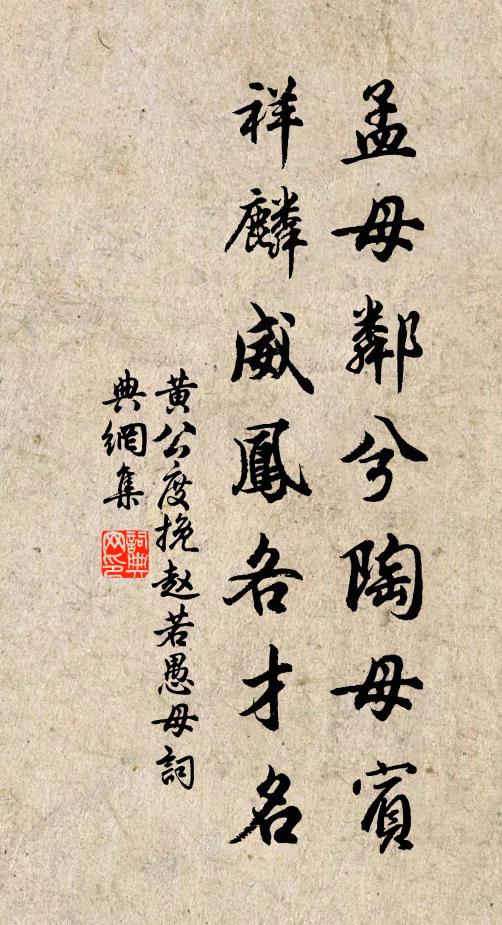 孟母鄰兮陶母賓
祥麟威鳳各才名
黃公度挽赵若愚母詞
典網集
詞典網印